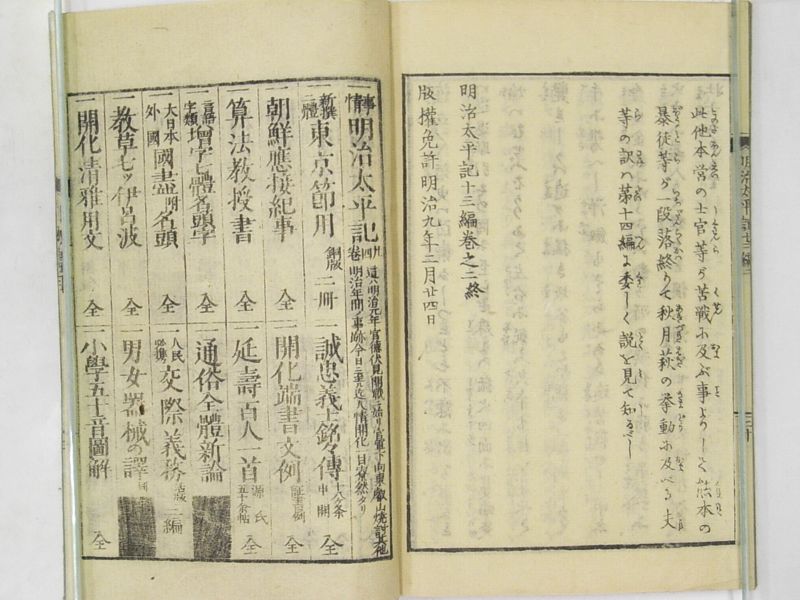 此他本営の士官等が苦戦に及ぶ事よりして熊本の
暴徒等が一段落終りて秋月萩の挙動に及べる丈
等の訳は第十四編に委しく説を見て知るべし
明治太平記十三編巻之二終
版權免許明治九年二月廿四日
明治太平記十三編
事情明治太平記
新撰三體東京節用 銅版 二冊
一朝鮮應接紀事 全
一算法教授書 全
一言語字類増字七體名頭字 全
一大日本外國國盡名頭 全
一教草七ッ伊呂波 全
一開化清雅用文 全
一誠忠義士銘々傳 全
一開化端書文例 全
一延壽百人一首 源氏五十余帖 全
一通俗全體新論
一人民必携交際義務 二編
一男女器械の譯
一小學五十音圖解 全